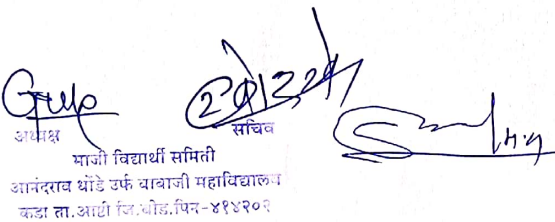 अध्यक्ष
सचिव
माजी विद्यार्थी समिती
आनंदराव धोंडे उर्फ बाबाजी महाविद्यालय
कडा ता.आष्टी जि.बीड.पिन-४१४२०२